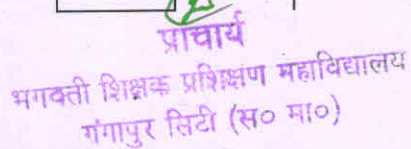 प्राचार्य
भगवती शिक्षक प्रशिक्षण महाविद्यालय
गंगापुर सिटी (स० मा०)